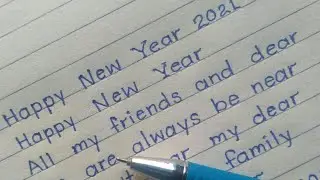 Happy New Year 2021
Happy New Year
All my friends and dear
are always be near
my dear
family